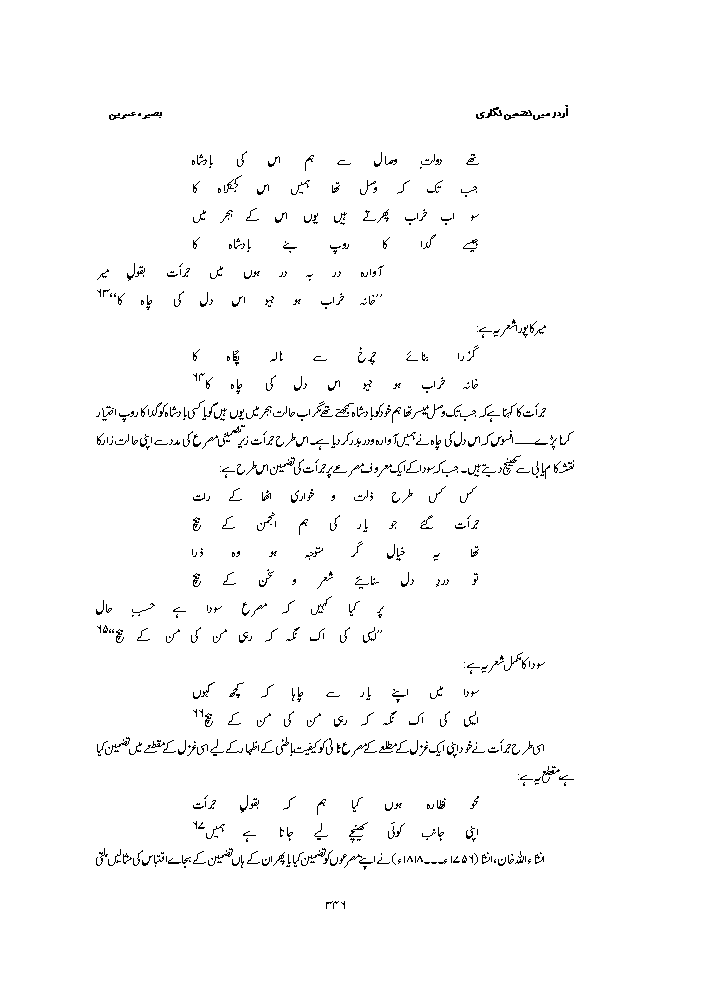 اُردو میں تضمین نگاری
بصیرہ عنبرین
تھے دولتِ وصال سے ہم اس کی بادشاہ
جب تک کہ وصل تھا ہمیں اس کجکلاہ کا
سو اب خراب پھرتے ہیں یوں اس کے ہجر میں
جیسے گدا کا روپ بنے بادشاہ کا
آوارہ در بہ در ہوں میں جرأت بقولِ میر
’’خانہ خراب ہو جیو اس دل کی چاہ کا‘‘۶۳
میر کا پورا شعر یہ ہے:
گزرا بنائے چرخ سے نالہ پگاہ کا
خانہ خراب ہو جیو اس دل کی چاہ کا۶۴
جرأت کا کہنا ہے کہ جب تک وصل میسر تھا ہم خود کو بادشاہ سمجھتے تھے مگر اب حالت ہجر میں یوں ہیں گویا کسی بادشاہ کو گدا کا روپ اختیار
کرنا پڑے___ افسوس کہ اس دل کی چاہ نے ہمیں آوارہ و در بدر کر دیا ہے۔ اس طرح جرأت زیرِ تضمینی مصرع کی مدد سے اپنی حالت زار کا
نقشہ کامیابی سے کھینچ دیتے ہیں۔ جب کہ سودا کے ایک معروف مصرعے پر جرأت کی تضمین اس طرح ہے:
کس کس طرح ذلت و خواری اٹھا کے رات
جرأت گئے جو یار کی ہم انجمن کے بیچ
تھا یہ خیال گر متوجہ ہو وہ ذرا
تو دردِ دل سنایئے شعر و سخن کے بیچ
پر کیا کہیں کہ مصرع سودا ہے حسبِ حال
’’ایسی کی اک نگہ کہ رہی من کی من کے بیچ‘‘۶۵
سودا کا مکمل شعر یہ ہے:
سودا میں اپنے یار سے چاہا کہ کچھ کہوں
ایسی کی اک نگہ کہ رہی من کی من کے بیچ۶۶
اسی طرح جرأت نے خود اپنی ایک غزل کے مطلعے کے مصرع ثانی کو کیفیت باطنی کے اظہار کے لیے اسی غزل کے مقطعے میں تضمین کیا
ہے مقطع یہ ہے:
محوِ نظارہ ہوں کیا ہم کہ بقولِ جرأت
اپنی جانب کوئی کھینچے لیے جاتا ہے ہمیں۶۷
انشاء اللہ خان، انشا (۱۷۵۶ء۔۔۔۱۸۱۸ء) نے اپنے مصرعوں کو تضمین کیا یا پھر ان کے ہاں تضمین کے بجاے اقتباس کی مثالیں ملتی
۳۴۶